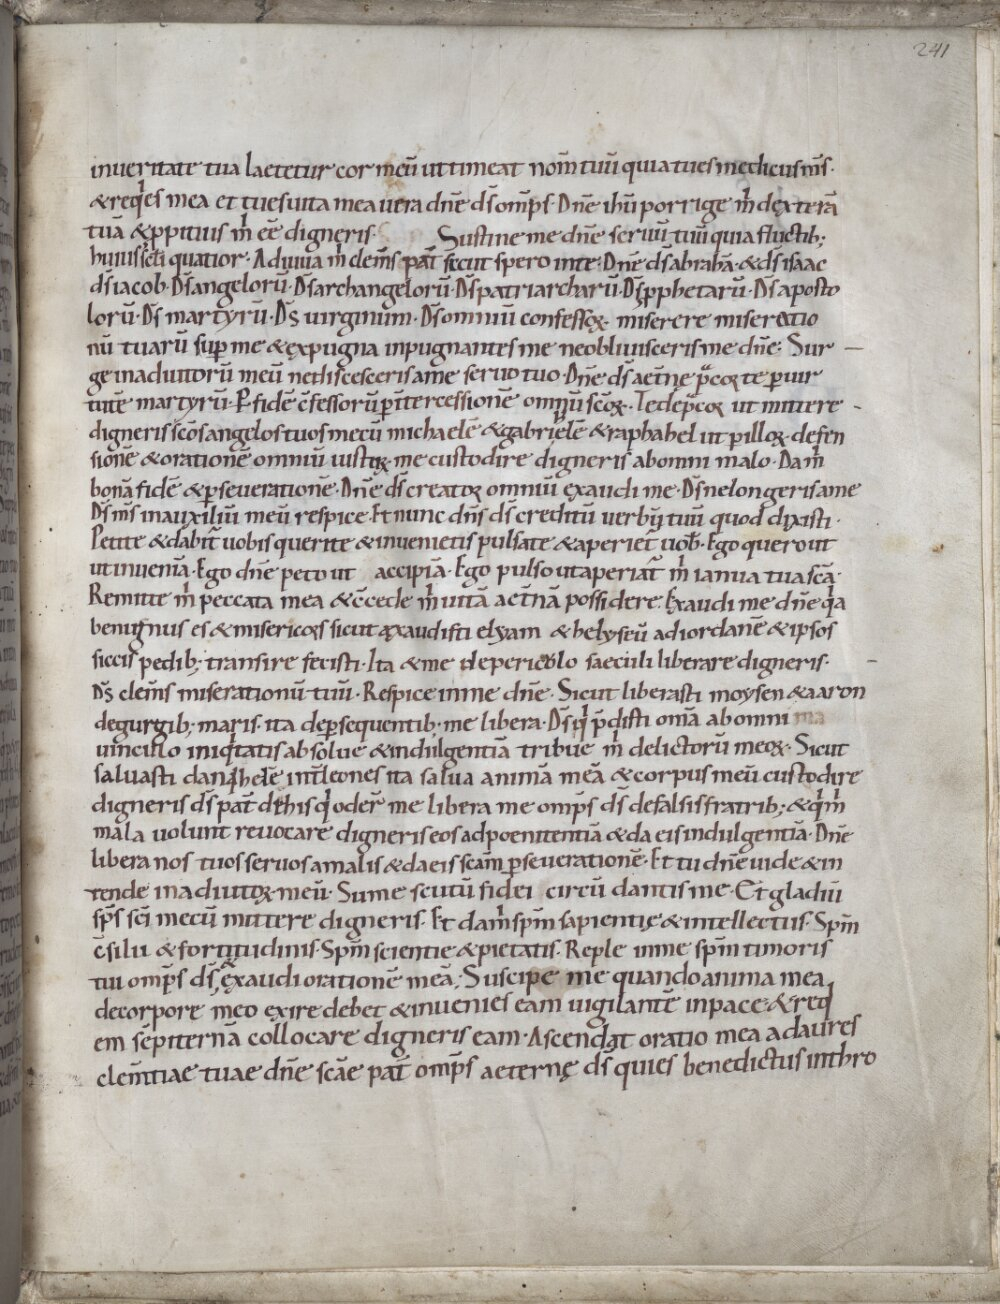 241
inveritate tua laetetur cor meū ut timeat nom̄ tuū quia tu es meth cus m̄s·
& req̇es mea et tu es uita mea uera dn̄e d̄s om̄ps· Dn̄e ihū porrige m̄ dęxterā
tuā & ꝓpitius m̄ eē digneris· Sustine me dn̄e seruū tuū quia fluctib;
huius scl̄i quatior· Adiuua m̄ clem̄s pat̄ sicut spero in te· Dn̄e d̄s abrahā· & d̄s isaac
d̄s iacob· D̄s angelorū· D̄s archangelorū· D̄s patriarcharū· D̄s ꝓphetarū· D̄s aposto
lorū· D̄s martyrū· D̄s uirginum· D̄s omniū confessoꝝ· miserere miseratio
nū tuarū suꝑ me & ęxpugna inpugnantes me ne obliuisceris me dn̄e· Sur
ge in adiutoriū meū ne discesceris a me seruo tuo· Dn̄e d̄s aet̄ne p̄coꝝ te ꝑ uir
tutē martyrū· P fidē c̄fessorū ꝑ īntercessionē omnīū sc̄oꝝ· Te dep̄coꝝ ut mittere
digneris sc̄os angelos tuos mecū michaelē & gabrielē & raphahel ut ꝑ illoꝝ· defen
sionē & orationē omniū iustoꝝ· me custodire digneris ab omni malo· Da m̄
bonā fidē & ꝑseuerationē· Dn̄e d̄s creatoꝝ omniū ęxaudi me· D̄s ne longeris a me
D̄s m̄s in auxiliū meū respice· Et nunc dn̄s d̄s creditū uerbū tuū quod dixisti·
Petite & dabit̄ uobis querite & inuenietis pulsate & aperiet̄ uob̄· Ego quero ut
ut inueniā· Ego dn̄e peto ut accipiā· Ego pulso ut aperiat̄ m̄ ianua tua sc̄ā·
Remitte m̄ peccata mea & c̄cede m̄ uitā aet̄nā possidere· Exaudi me dn̄e q̇a
benignus es & misericoꝝs sicut ęxaudisti elyam & helyseū ad iordanē & ipsos
siccis pedib; transire fecisti· Ita & me de periculo saeculi liberare digneris·
D̄s clem̄s miserationū tuū· Respice in me dn̄e· Sicut liberasti moysen & aaron
de gurgib; maris· ita de ꝑsequentib; me libera· D̄s q̇ p̄disti om̄a ab omni ma
uinculo iniq̇tatis absolue & indulgentiā tribue m̄ delictorū meoꝝ· Sicut
saluasti danihelē int̄ leones ita salua animā meā & corpus meū custodire
digneris d̄s pat̄ de his q̇ oder̄ me libera me om̄ps d̄s de falsis fratrib; & q̇ m̄
mala uolunt reuocare digneris eos ad poenitentiā & da eis indulgentiā· Dn̄e
libera nos tuos seruos a malis & da eis sc̄am ꝑseuerationē· Et tu dn̄e uide & in
tende in adiutoꝝ· meū· Sume scutū fidei circū dantis me· Et gladiū
sp̄s sc̄i mecū mittere digneris· Et da m̄ sp̄m sapientię & intellectus· Sp̄m
c̄silii & fortitudinis· Sp̄m scientie & pietatis· Reple in me sp̄m timoris
tui om̄ps d̄s, ęxaudi orationē meā· Suscipe me quando anima mea
de corpore meo exire debet & inuenies eam uigilantē in pace & req̇
em sēpiternā collocare digneris eam· Ascendat oratio mea ad aures
clem̄tiae tuae dn̄e sc̄ae pat̄ om̄ps aeternę d̄s qui es benedictus in thro